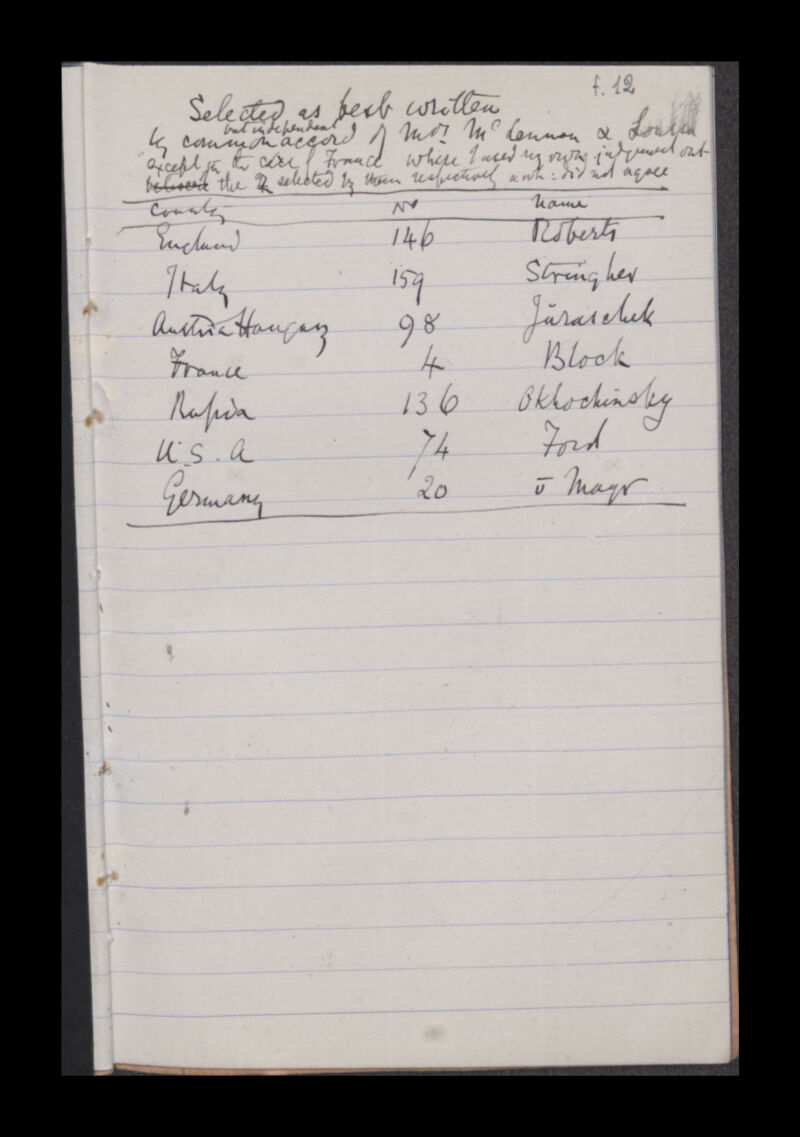 f. 12
Selected as best written
but independent
by common accord of Mrs. Mc Lennan & Louisa
except in the case of France where I used my own judgement out
between the 2 selected by them respectively & wh: did not agree
Country No Name
England 146 Roberts
Italy 159 Stringher
Austria Hungary 98 Juraschek
France 4 Block
Russia 136 Okhochinsky
U.S.A 74 Ford
Germany 20 v Mayr